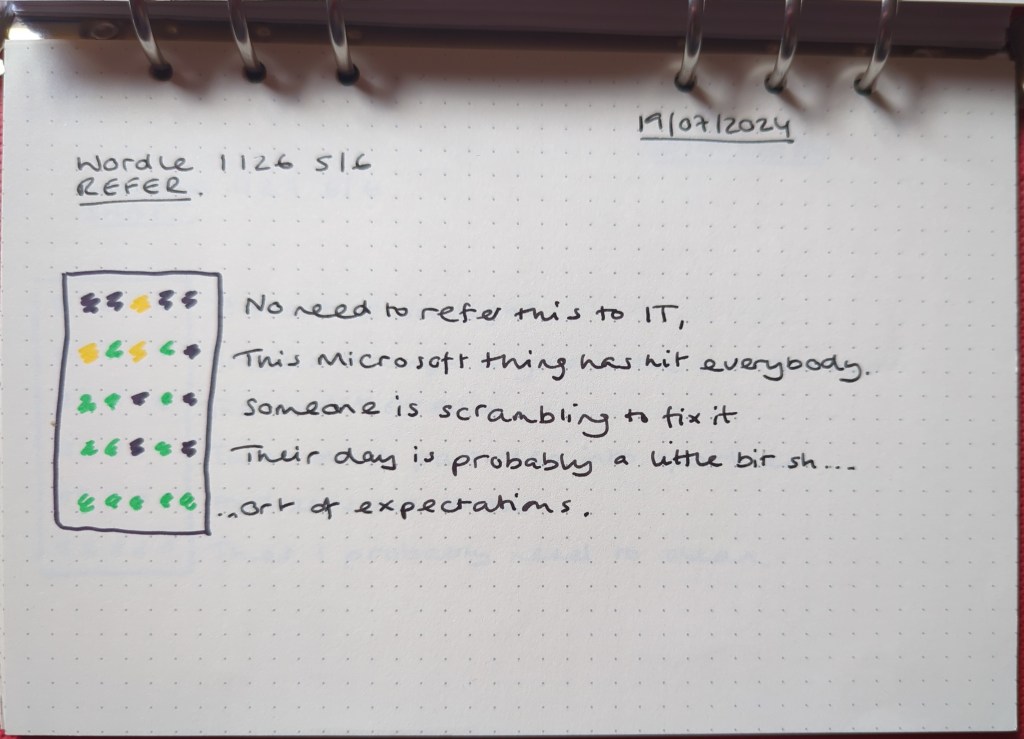 19/07/2024
Wordle 1126 5/6
REFER.
No need to refer this to IT,
This Microsoft thing has hit everybody.
Someone is scrambling to fix it
Their day is probably a little bit sh...
..ort of expectations.